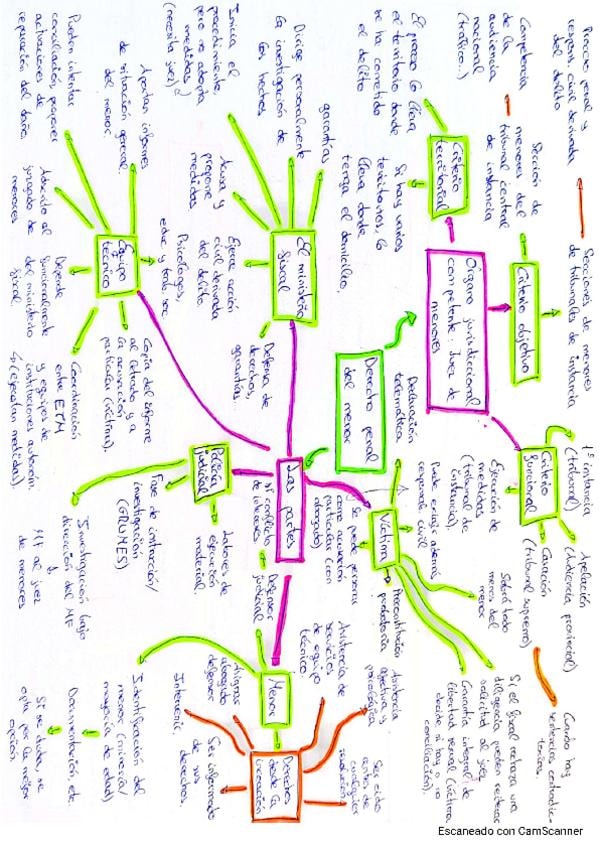 Proceso penal y
respons. civil derivada
del delito
Secciones de menores
de tribunales de instancia
Competencia
de la
audiencia
nacional
(tráfico...)
Sección de
menores del
tribunal central
de instancia
Criterio objetivo
El proceso lo lleva
el territorio donde
se ha cometido
el delito
Criterio
territorial
Si hay varios
territorios, lo
lleva donde
tenga el domicilio.
Órgano jurisdiccional
competente: Juez de
menores
Criterio
funcional
1ª instancia
(tribunal)
Apelación
(Audiencia provincial)
Casación
(tribunal supremo)
Cuando hay
sentencias contradic-
torias.
Ejecución de
medidas
(tribunal de
instancia).
Derecho penal
del menor
Las partes
Dirige personalmente
la investigación de
los hechos
garantías
Inicia el
procedimiento,
pero no adopta
medidas
(necesita juez)
El ministerio
fiscal
Acusa y
propone
medidas
Ejerce acción
civil derivada
del delito.
Defensa de
derechos,
garantías
Aportar informes
de situación general
del menor
Pueden intentar
conciliación, proponer
actuaciones de
reparación del daño.
Equipo
técnico
Psicólogos,
educ y trab. soc
Adscrito al
juzgado de
menores
Depende
funcionalmente
del ministerio
fiscal.
Copia del informe
al letrado y a
la acusación
particular (víctima).
Coordinación
entre ETM
y equipos de
instituciones autonóm.
(ejecutan medidas)
Policía
judicial
Labores de
ejecución
material.
Fase de instrucción/
investigación
(GRUMES)
Investigación bajo
dirección del MF
y
MF al juez
de menores
Víctima
Declaración
telemática
Puede exigir además
respons. civil
y se puede personar
como acusación
particular (con
abogado)
Preconstitución
probatoria
Sobre todo
menos del
menor
Si el fiscal rechaza una
diligencia pueden reiterar
solicitud al juez
Garantía integral de
libertad sexual (víctima
decide si hay o no
conciliación).
Menor
Defensor
judicial
si conflicto
de intereses
Asignar
abogado
defensor
Identificación del
menor (minoría/
mayoría de edad)
Documentación, etc.
Si se duda, se
opta por la mejor
opción.
Derechos
desde la
incoación
Asistencia de
servicios
de equipo
técnico
Asistencia
afectiva y
psicológica
Ser oído
antes de
cualquier
resolución
Intervenir
Ser informado
de sus
derechos.
Escaneado con CamScanner